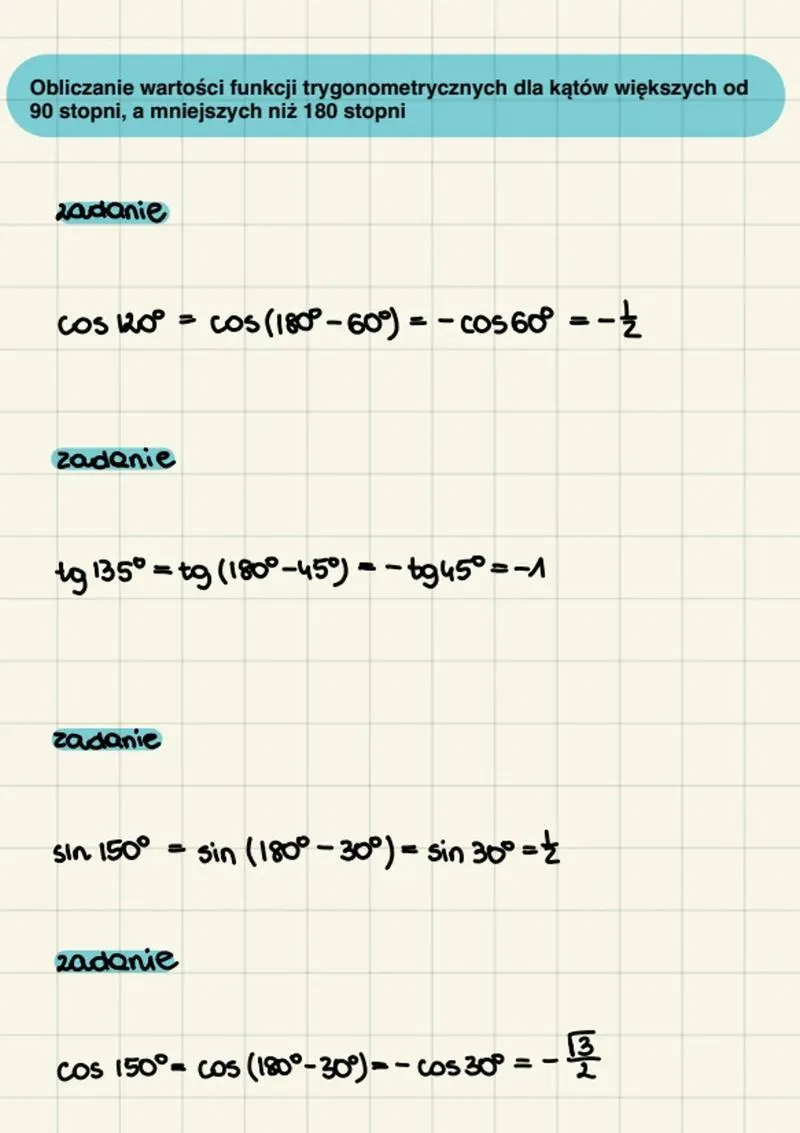 Obliczanie wartości funkcji trygonometrycznych dla kątów większych od
90 stopni, a mniejszych niż 180 stopni
zadanie
cos 120° = cos (180° - 60°) = - cos 60° = - 1/2
zadanie
tg 135° = tg (180° - 45°) = - tg 45° = -1
zadanie
sin 150° = sin (180° - 30°) = sin 30° = 1/2
zadanie
cos 150° = cos (180° - 30°) = - cos 30° = - √3/2